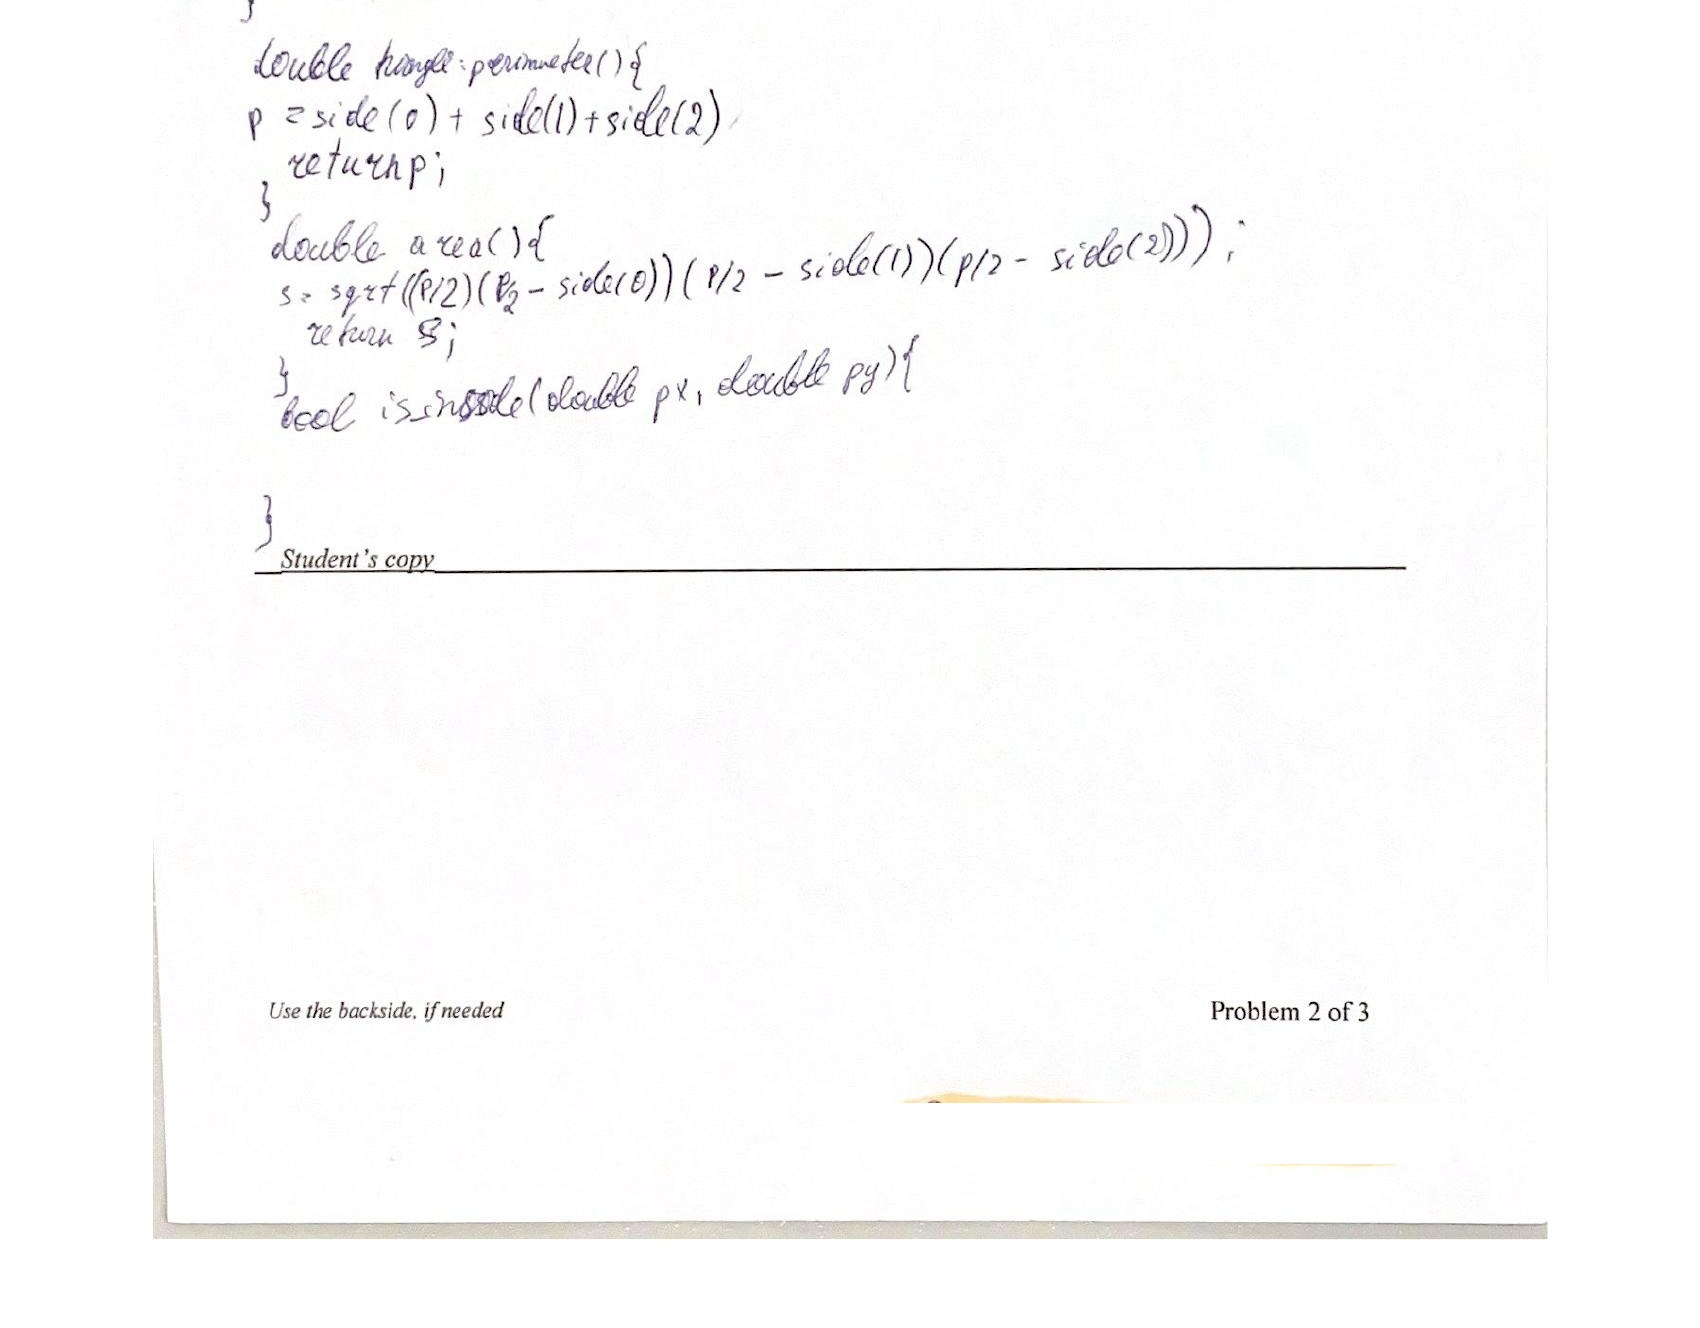 }
double triangle:perimeter(){
p = side(0) + side(1)+side(2)
return p;
}
double area(){
s= sqrt((P/2)(P/2 - side(0))(P/2 - side(1))(p/2 - side(2)));
return s;
}
bool is_inside(double px, double py){
}
Student's copy
Use the backside, if needed
Problem 2 of 3